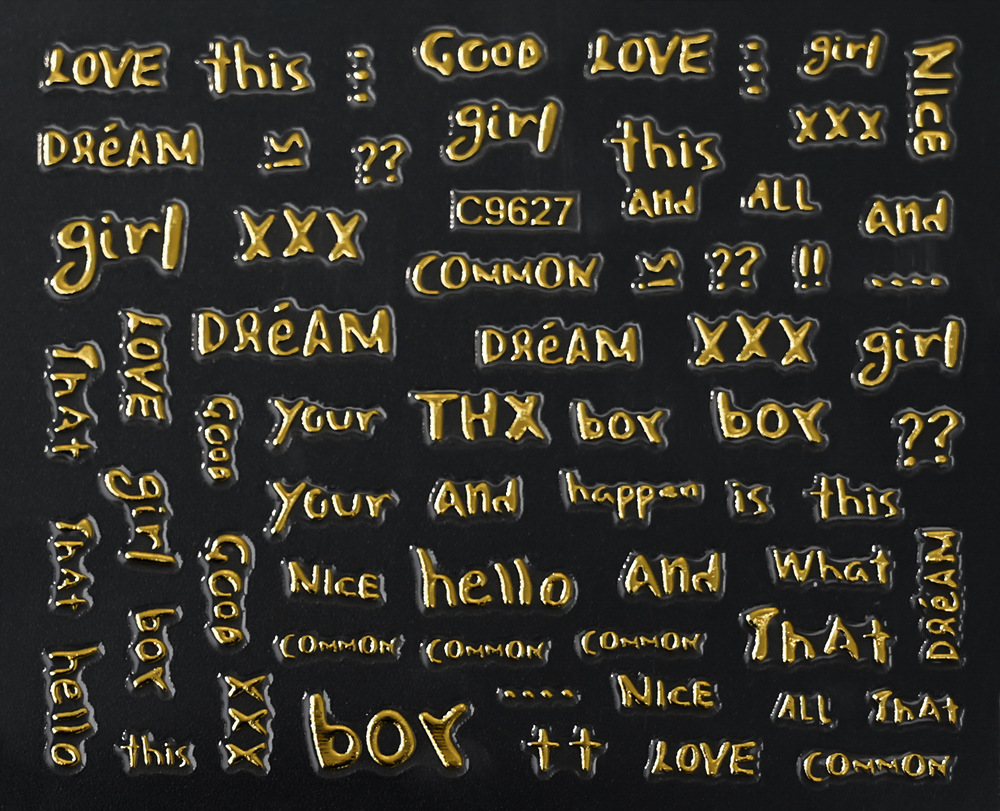 LOVE this ... GOOD LOVE ... girl NICE
DRéAM is ?? girl this XXX
C9627 And ALL And
girl XXX COMMON is ?? !! ....
LOVE DRéAM DRéAM XXX girl
ThAt GOOD your THX boy boy ??
girl your And happen is this
ThAt GOOD NICE hello And What DRéAM
boy COMMON COMMON COMMON ThAt
hello XXX boy .... NICE ALL ThAt
this tt LOVE COMMON